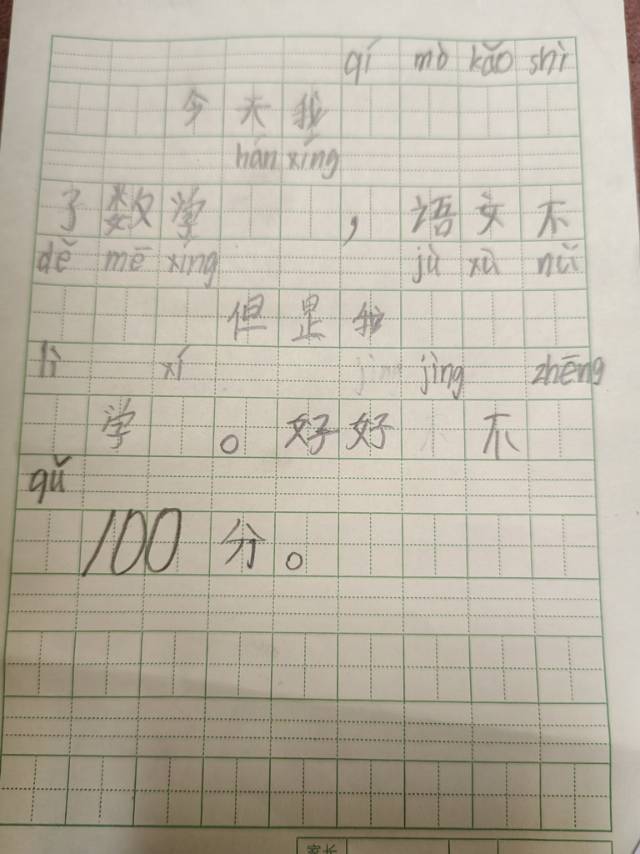 qí mò kǎo shì
今天我
hán xíng
了数学，语文不
dě mē xíng jù xù nǔ
但是我
lì xí jìng zhēng
学。好好不
qǔ
100分。
家长